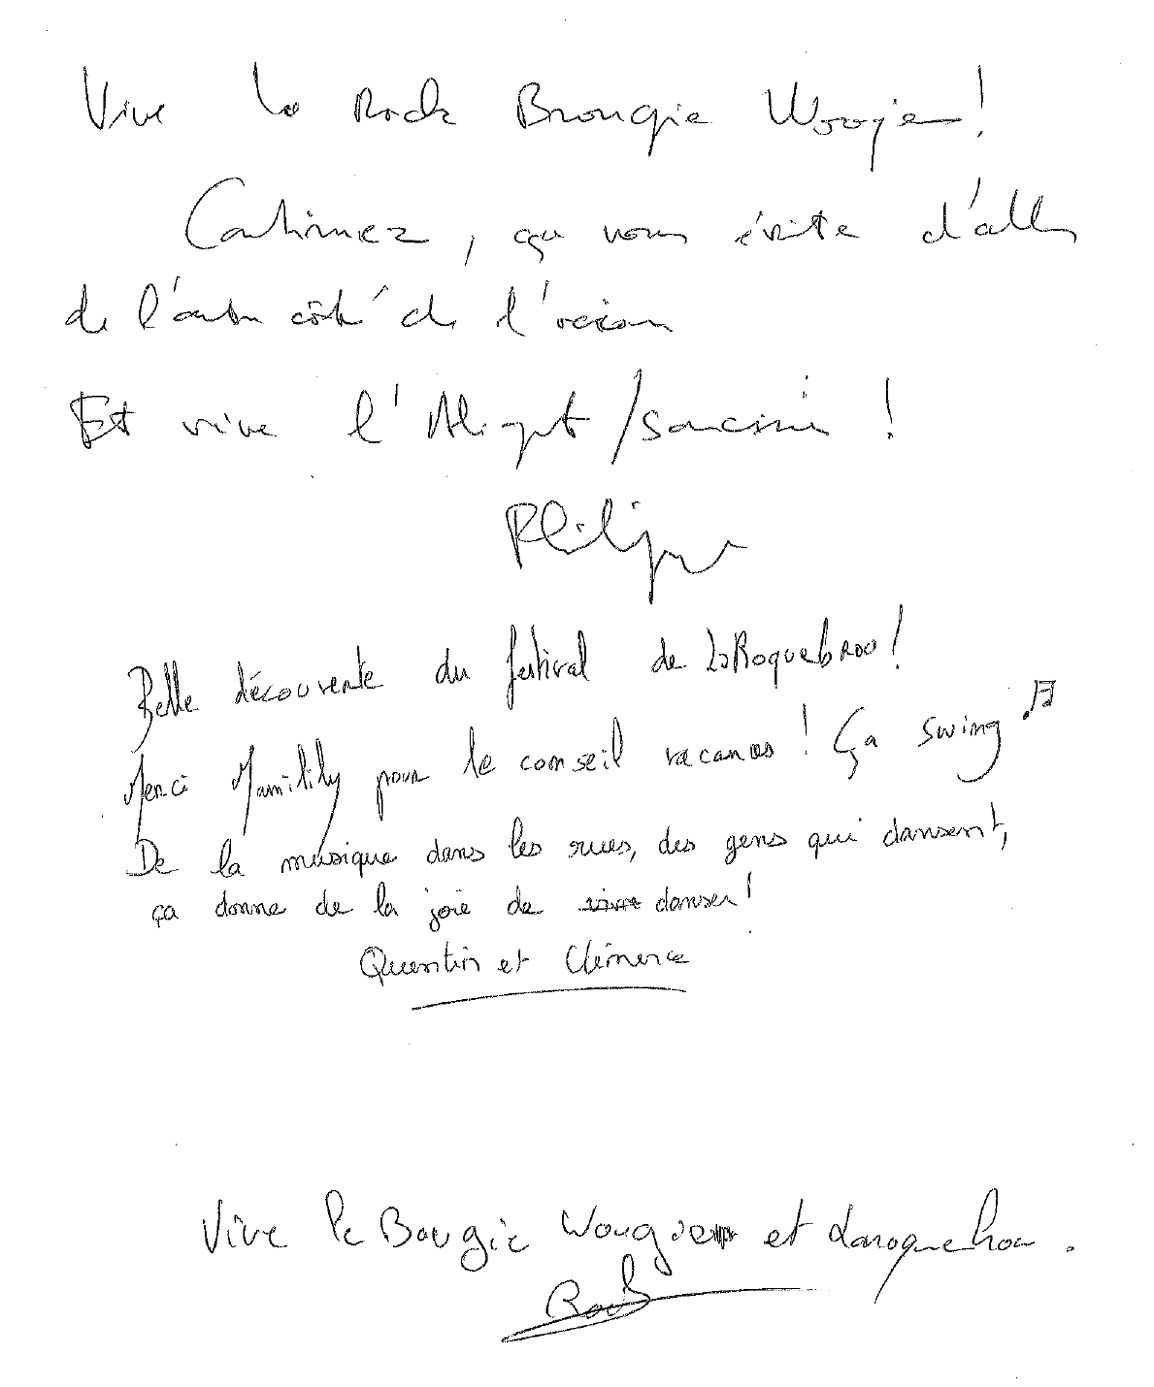 Vive le Rock Brougie Woogie !
Continuez, ça vous évite d'aller
de l'autre côté de l'océan
Et vive l'Aligot / saucisse !
Philippe
Belle découverte du festival de LaRoquebrou !
Merci Mamilily pour le conseil vacances ! Ça swing ♫
De la musique dans les rues, des gens qui dansent,
ça donne de la joie de vivre danser !
Quentin et Clémence
Vive le Bougie Wougie et Laroquebrou .